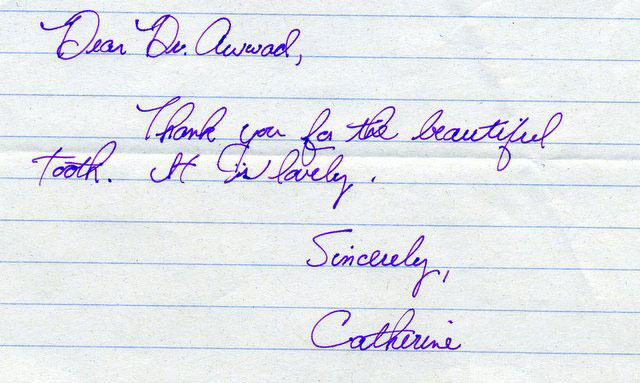 Dear Dr. Awwad,
Thank you for the beautiful
tooth. It is lovely.
Sincerely,
Catherine